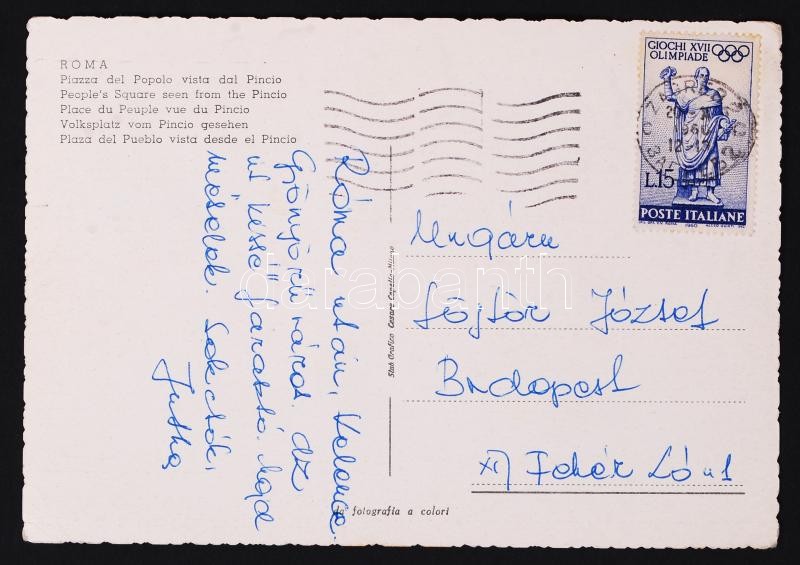 ROMA
Piazza del Popolo vista dal Pincio
People's Square seen from the Pincio
Place du Peuple vue du Pincio
Volksplatz vom Pincio gesehen
Plaza del Pueblo vista desde el Pincio
GIOCHI XVII
OLIMPIADE
L.15
POSTE ITALIANE
1960
Róma után, Velence.
Gyönyörű város. Az
út kissé fárasztó. Majd
mesélek. Sok csók,
Jutka
Stab Grafico Cesare Capello-Milano
Ungárn
Sójtör József
Budapest
XI Fehér Ló u 1
fotografia a colori
darabanth